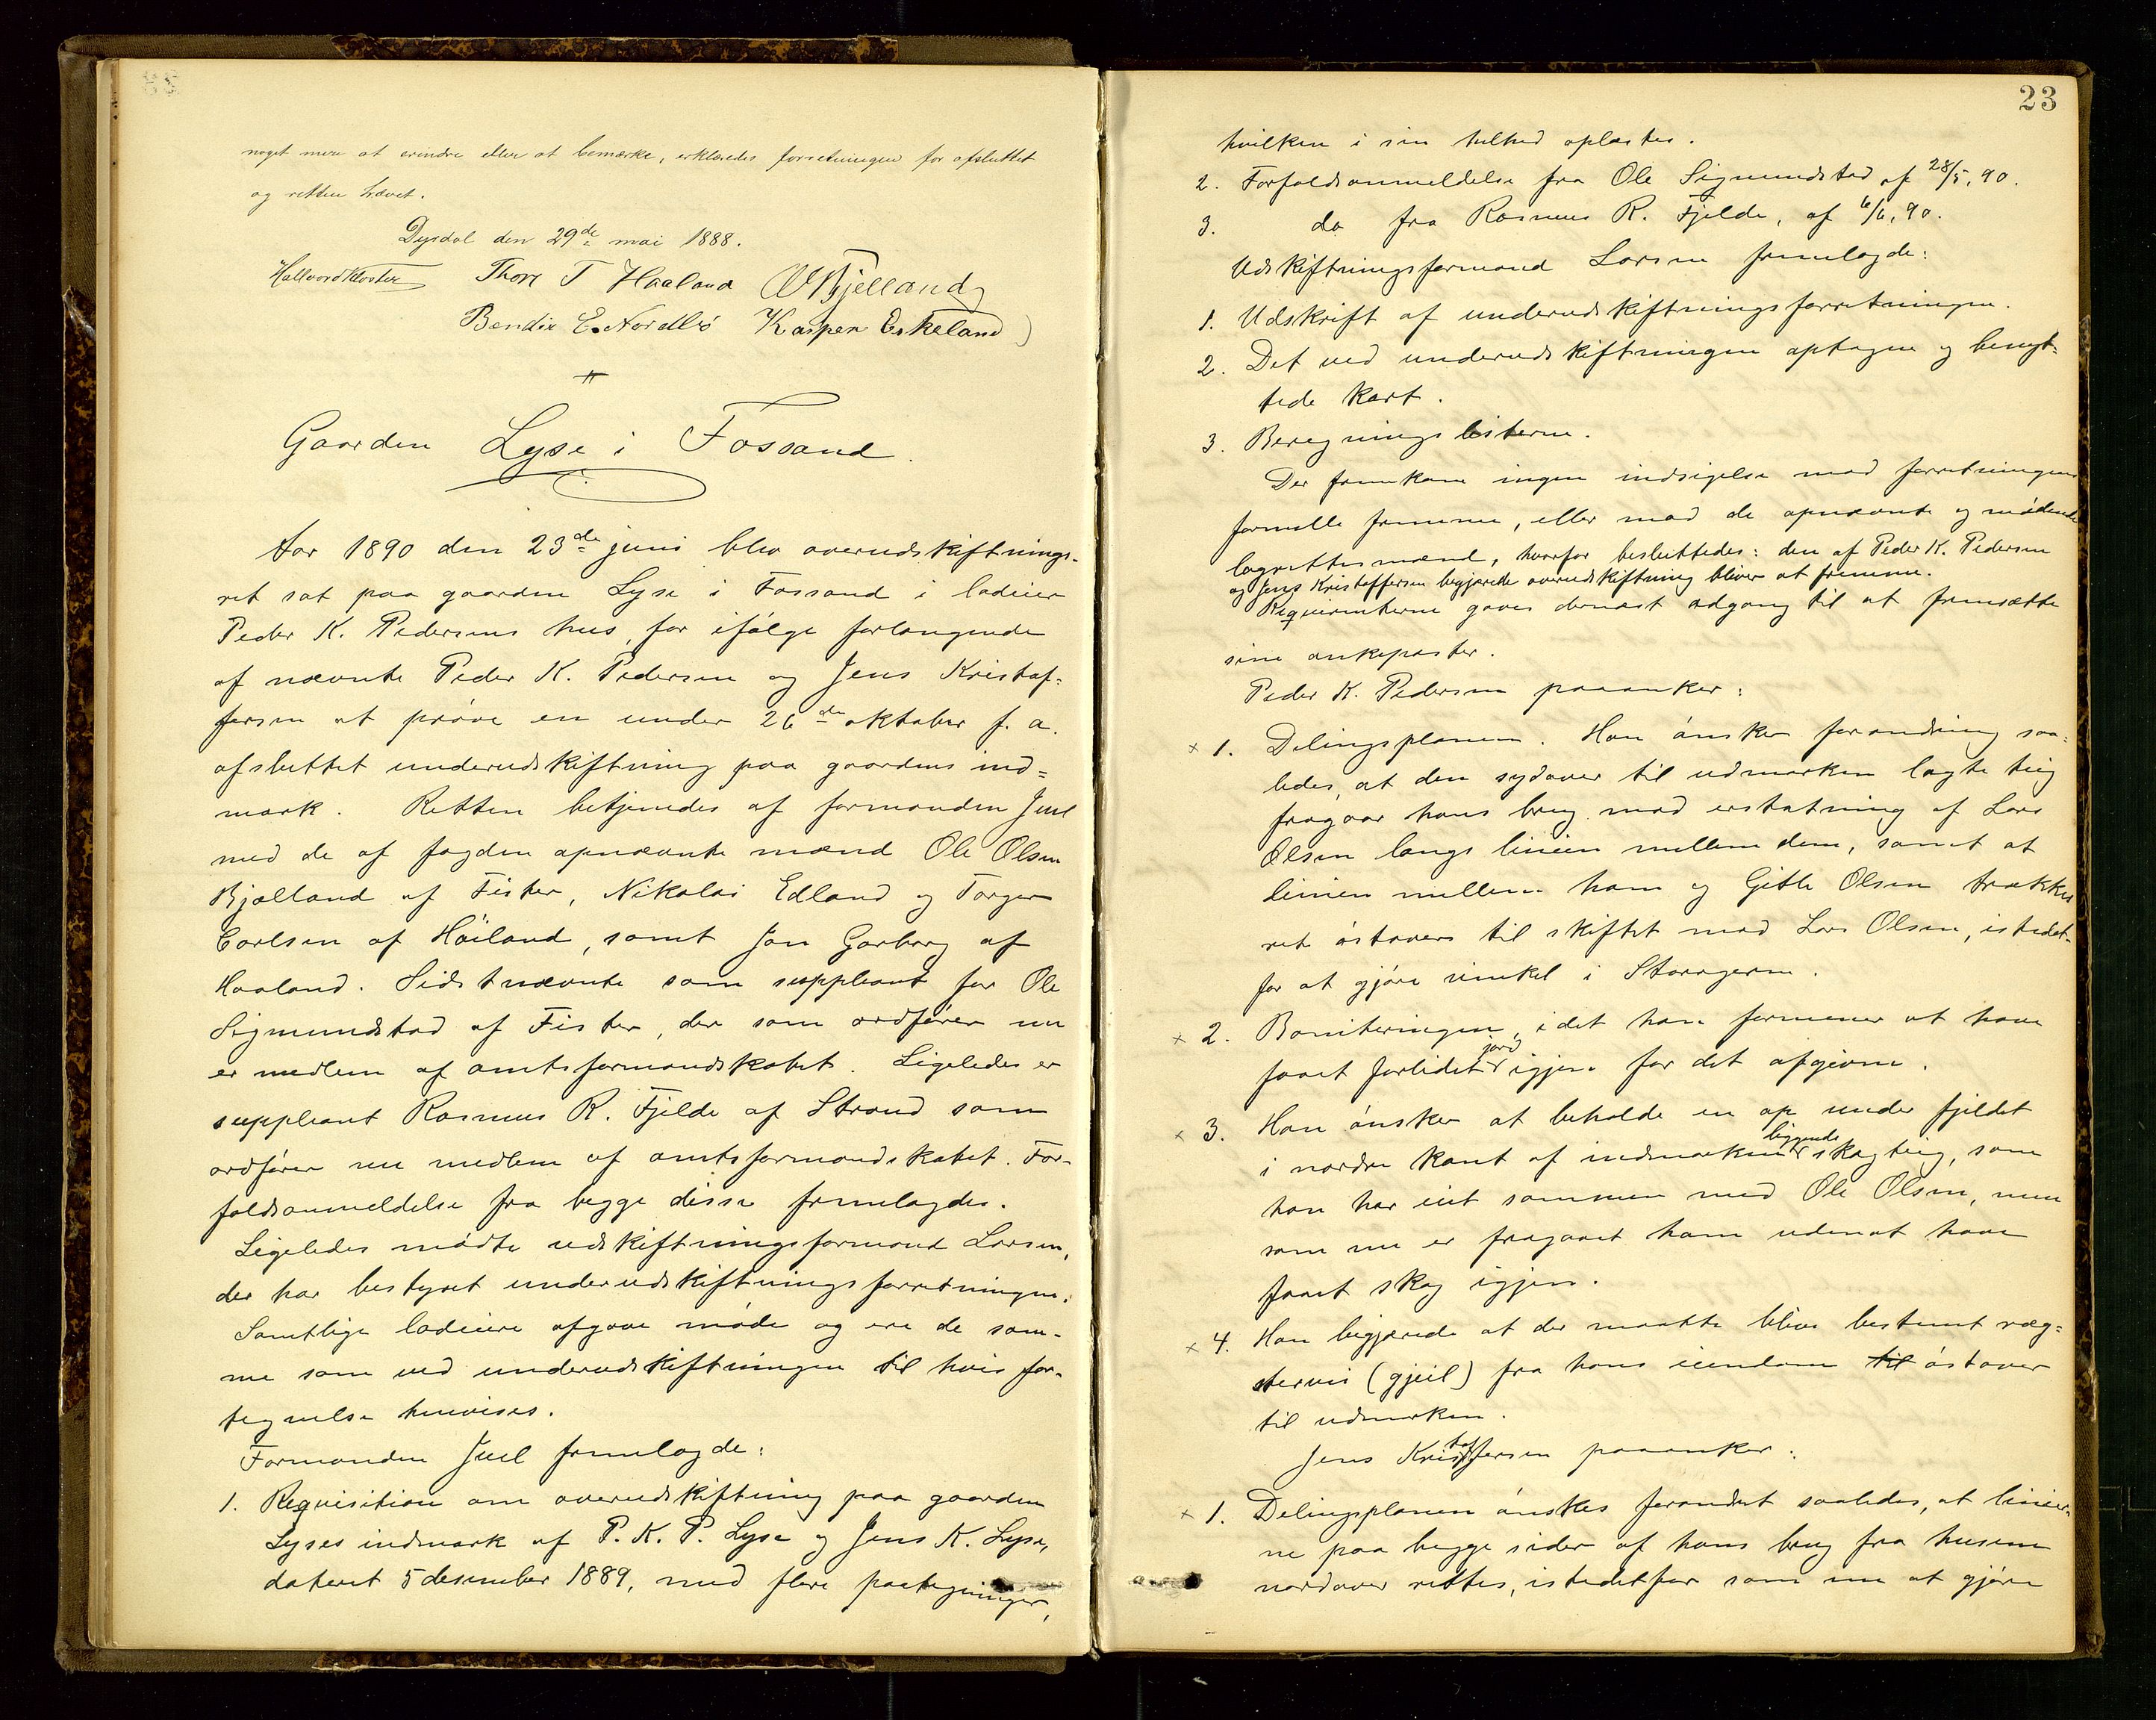 noget mere at erindre eller at bemærke, erklæredes forretningen for afsluttet
og retten hævet.
Dysdal den 29de mai 1888.
Hallvard Kloster Thore T Haaland O Bjelland
Bendix E. Nordbö Kasper Eskeland
Gaarden Lyse i Fossand.
Aar 1890 den 23de juni blev overudskiftnings-
ret sat paa gaarden Lyse i Fossand i lodeier
Peder K. Pedersens hus, for ifølge forlangende
af nævnte Peder K. Pedersen og Jens Kristof=
fersen at prøve en under 26de oktober f. a.
afsluttet underudskiftning paa gaardens ind=
mark. Retten betjenedes af formanden Juel
med de af fogden opnævnte mænd Ole Olsen
Bjelland af Fister, Nikolai Edland og Torger
Carlsen af Höiland, samt Jon Garborg af
Haaland. Sidstnævnte som suppleant for Ole
Sigmundstad af Fister, der som ordfører nu
er medlem af amtsformandskabet. Ligeledes er
suppleant Rasmus R. Fjelde af Strand som
ordfører nu medlem af amtsformandskabet. For-
faldsanmeldelse fra begge disse fremlagdes.
Ligeledes mødte udskiftningsformand Larsen,
der har bestyret underudskiftningsforretningen.
Samtlige lodeiere afgave møde og ere de sam-
me som ved underudskiftningen til hvis for-
tegnelse henvises.
Formanden Juel fremlagde:
1. Requisition om overudskiftning paa gaarden
Lyses indmark af P. K. P. Lyse og Jens K. Lyse,
dateret 5 desember 1889, med flere paategninger,
23
hvilken i sin helhed oplæstes.
2. Forfaldsanmeldelse fra Ole Sigmundstad af 28/5, 90.
3. do fra Rasmus R. Fjelde, af 6/6, 90.
Udskiftningsformand Larsen fremlagde:
1. Udskrift af underudskiftningsforretningen.
2. Det ved underudskiftningen optagne og benyt=
tede kart.
3. Beregningslisterne.
Der fremkom ingen indsigelse mod forretningens
formelle fremme, eller mod de opnævnte og mødende
lagrettesmænd, hvorfor besluttedes: den af Peder K. Pedersen
og Jens Kristoffersen begjærede overudskiftning bliver at fremme.
Requirenterne gaves dernæst adgang til at fremsætte
sine ankeposter.
Peder K. Pedersen paaanker:
x 1. Delingsplanen. Han ønsker forandring saa=
ledes, at den sydover til udmarken lagte teig
fragaar hans brug mod erstatning af Lars
Olsen langs linien mellem dem, samt at
linien mellem ham og Gitle Olsen trækkes
ret østover til skiftet mod Lars Olsen, istedet-
for at gjøre vinkel i Storageren.
x 2. Boniteringen, idet han formener at have
faaet forlidet jord igjen for det afgivne.
x 3. Han ønsker at beholde en op under fjeldet
i nordre kant af indmarken liggende skogteig, som
han har eiet sammen med Ole Olsen, men
som nu er fragaaet ham uden at have
faaet skog igjen.
x 4. Han begjærede at der maatte blive bestemt ræg=
stervei (gjeil) fra hans eiendom til østover
til udmarken.
Jens Kristoffersen paaanker:
x 1. Delingsplanen ønskes forandret saaledes, at linier-
ne paa begge sider af hans brug fra husene
nordover rettes, istedetfor som nu at gjøre